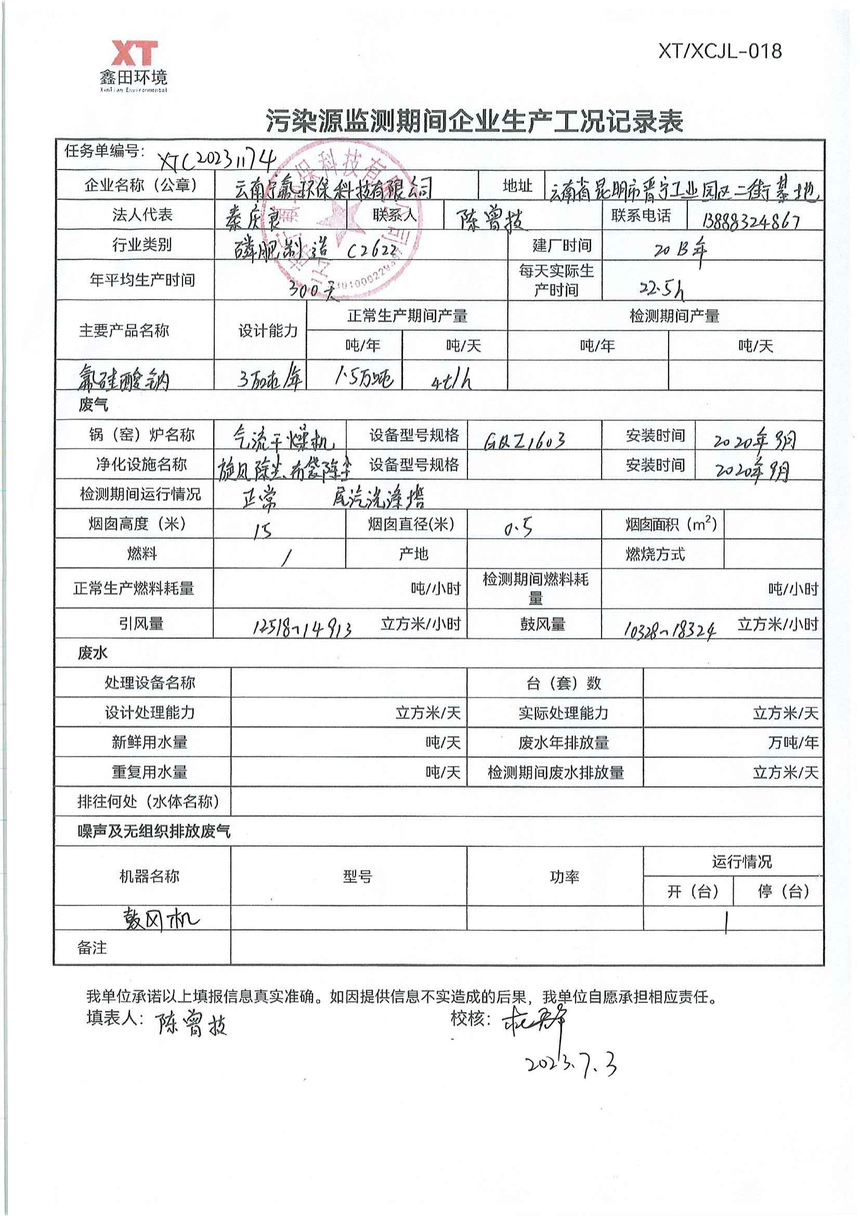 XT
鑫田环境
XinTian Environmental
XT/XCJL-018
污染源监测期间企业生产工况记录表
任务单编号: XTC20231174
企业名称（公章） 云南 氟环保科技有限公司 地址 云南省昆明市晋宁工业园区二街基地
法人代表 秦庆良 联系人 陈曾技 联系电话 13888324867
行业类别 磷肥制造 C2622 建厂时间 2013年
年平均生产时间 300天 每天实际生产时间 22.5h
主要产品名称 设计能力 正常生产期间产量 检测期间产量
吨/年 吨/天 吨/年 吨/天
氟硅酸钠 3万吨/年 1.5万吨 4t/h
废气
锅（窑）炉名称 气流干燥机 设备型号规格 GQZ1603 安装时间 2020年9月
净化设施名称 旋风除尘、布袋除尘 设备型号规格 安装时间 2020年9月
检测期间运行情况 正常 尾汽洗涤塔
烟囱高度（米） 15 烟囱直径(米) 0.5 烟囱面积（m²）
燃料 / 产地 燃烧方式
正常生产燃料耗量 吨/小时 检测期间燃料耗量 吨/小时
引风量 12518~14913 立方米/小时 鼓风量 10328~18324 立方米/小时
废水
处理设备名称 台（套）数
设计处理能力 立方米/天 实际处理能力 立方米/天
新鲜用水量 吨/天 废水年排放量 万吨/年
重复用水量 吨/天 检测期间废水排放量 立方米/天
排往何处（水体名称）
噪声及无组织排放废气
机器名称 型号 功率 运行情况
开（台） 停（台）
鼓风机 1
备注
我单位承诺以上填报信息真实准确。如因提供信息不实造成的后果，我单位自愿承担相应责任。
填表人: 陈曾技 校核:
2023.7.3